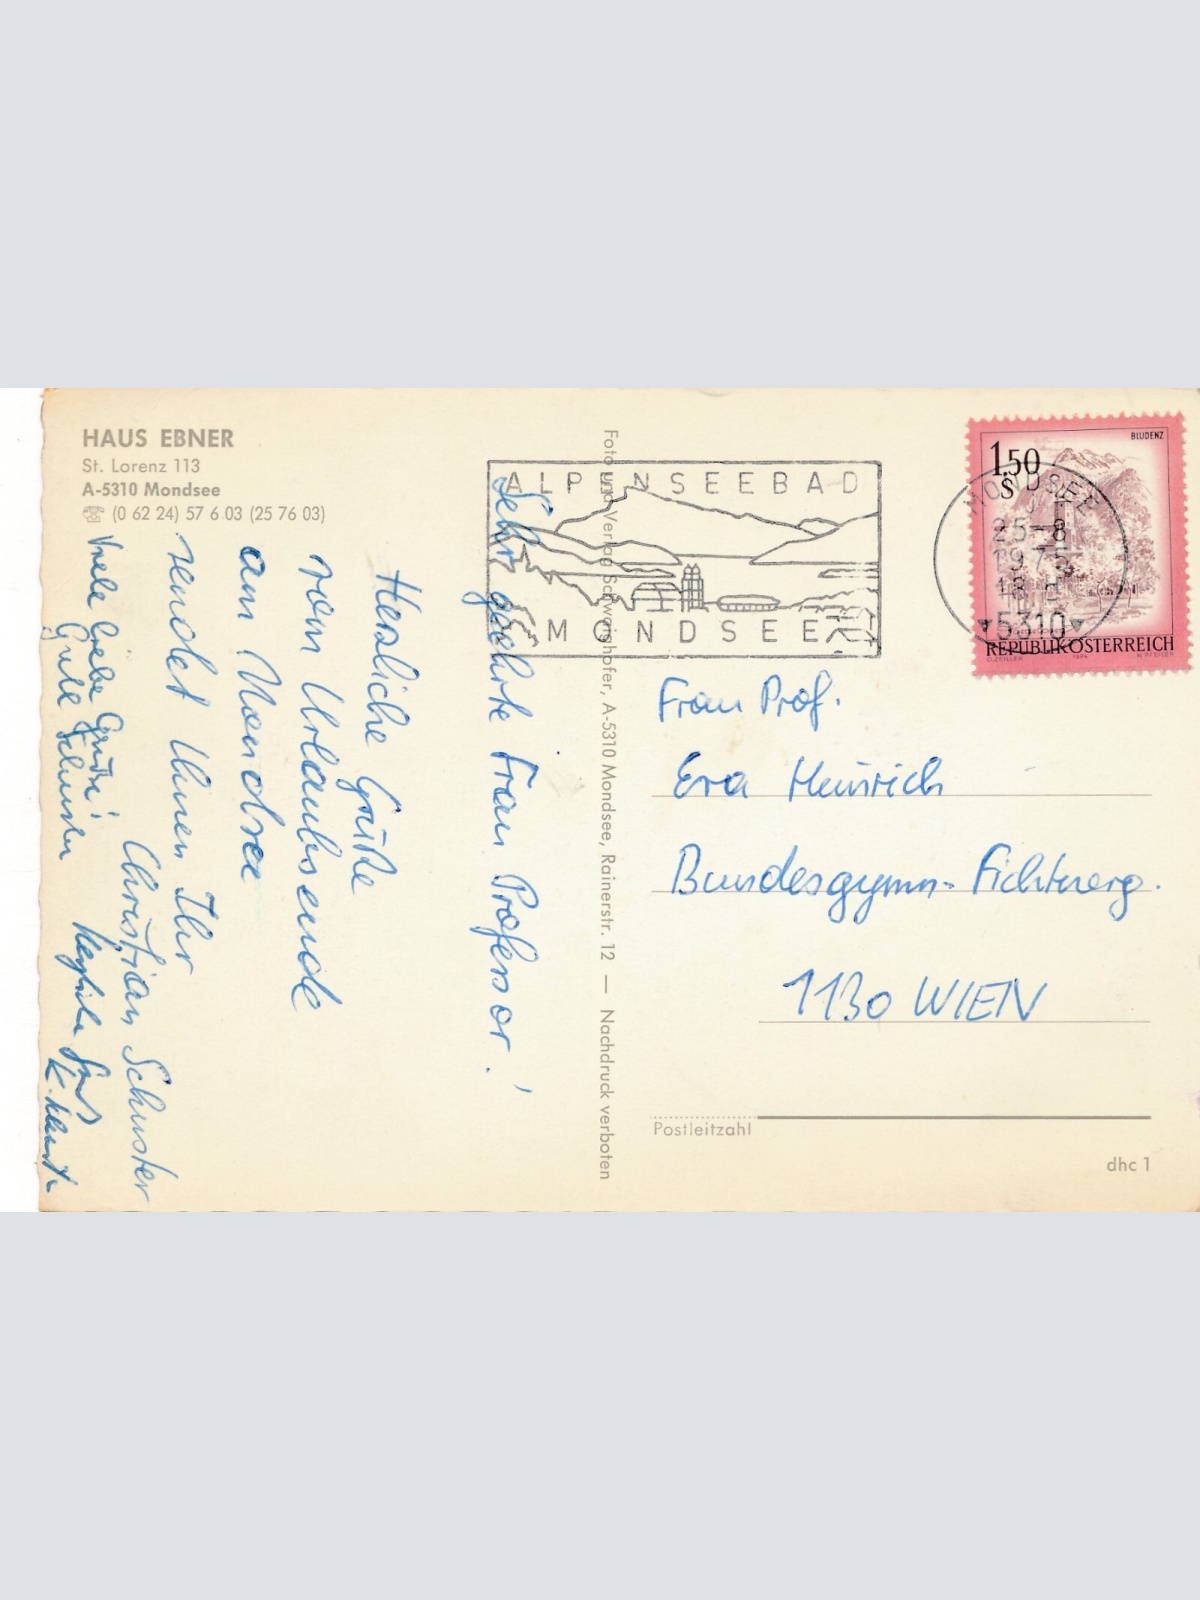 HAUS EBNER
St. Lorenz 113
A-5310 Mondsee
☏ (0 62 24) 57 6 03 (25 76 03)
Sehr geehrte Frau Professor!
Herzliche Grüße
vom Urlaubsende
am Mondsee
sendet Ihnen Ihr
Christian Schuster
Viele liebe Grüße!
Foto und Verlag Schwaighofer, A-5310 Mondsee, Rainerstr. 12 — Nachdruck verboten
ALPENSEEBAD
MONDSEE
BLUDENZ
1.50
S
REPUBLIK ÖSTERREICH
1974
MONDSEE
25.-8
1975
18
5310
Frau Prof.
Eva Heinrich
Bundesgymn. Fichtnerg.
1130 WIEN
Postleitzahl
dhc 1